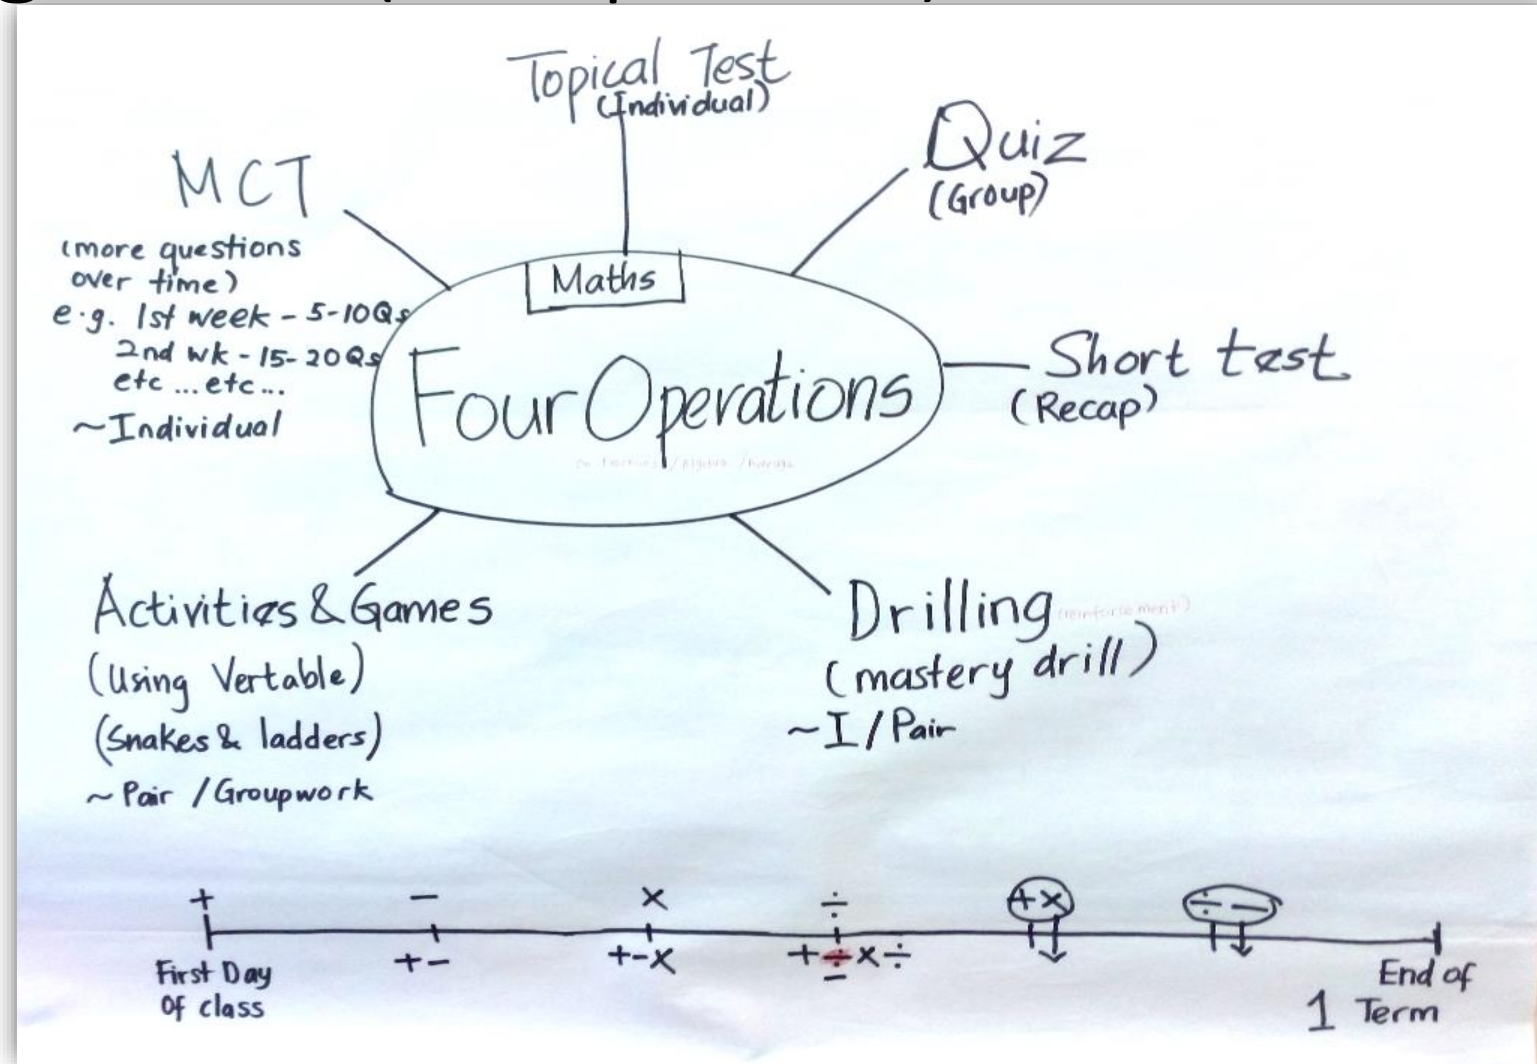 Topical Test
(Individual)
Quiz
(Group)
MCT
(more questions
over time)
e.g. 1st week - 5-10Qs
2nd wk - 15-20Qs
etc ... etc...
~Individual
Maths
Four Operations
Short test
(Recap)
Activities & Games
(Using Vertable)
(Snakes & ladders)
~ Pair / Groupwork
Drilling (reinforcement)
(mastery drill)
~ I / Pair
+ − × ÷ +× ÷−
+− +-× +÷×÷
−
First Day
Of class
End of
1 Term